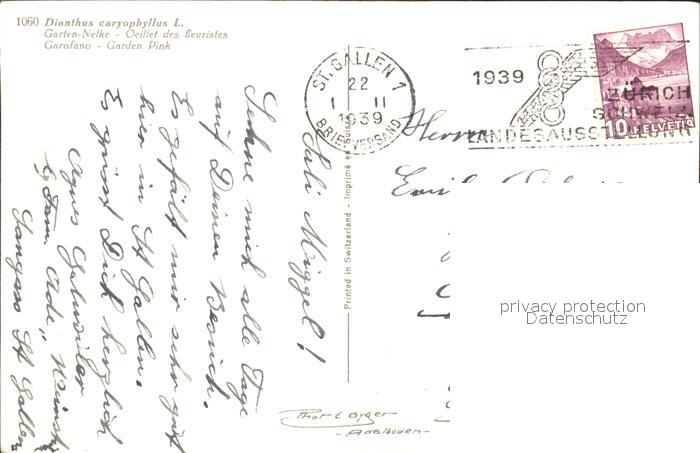 1060 Dianthus caryophyllus L.
Garten-Nelke - Oeillet des fleuristes
Garofano - Garden Pink
ST. GALLEN 1
22
1 II
1939
BRIEFVERSAND
1939
ZÜRICH
SCHWEIZ.
LANDESAUSSTELLUNG
10 HELVETIA
Herrn
Emil
Printed in Switzerland - Imprimé en Suisse
Sehne mich alle Tage
auf Deinen Besuch.
Es gefällt mir sehr gut
hier in St Gallen.
Es grüsst Dich herzlich
Agnes
b/ Fam.
Langass St Gallen
Phot E Gyger
- Adelboden -
privacy protection
Datenschutz